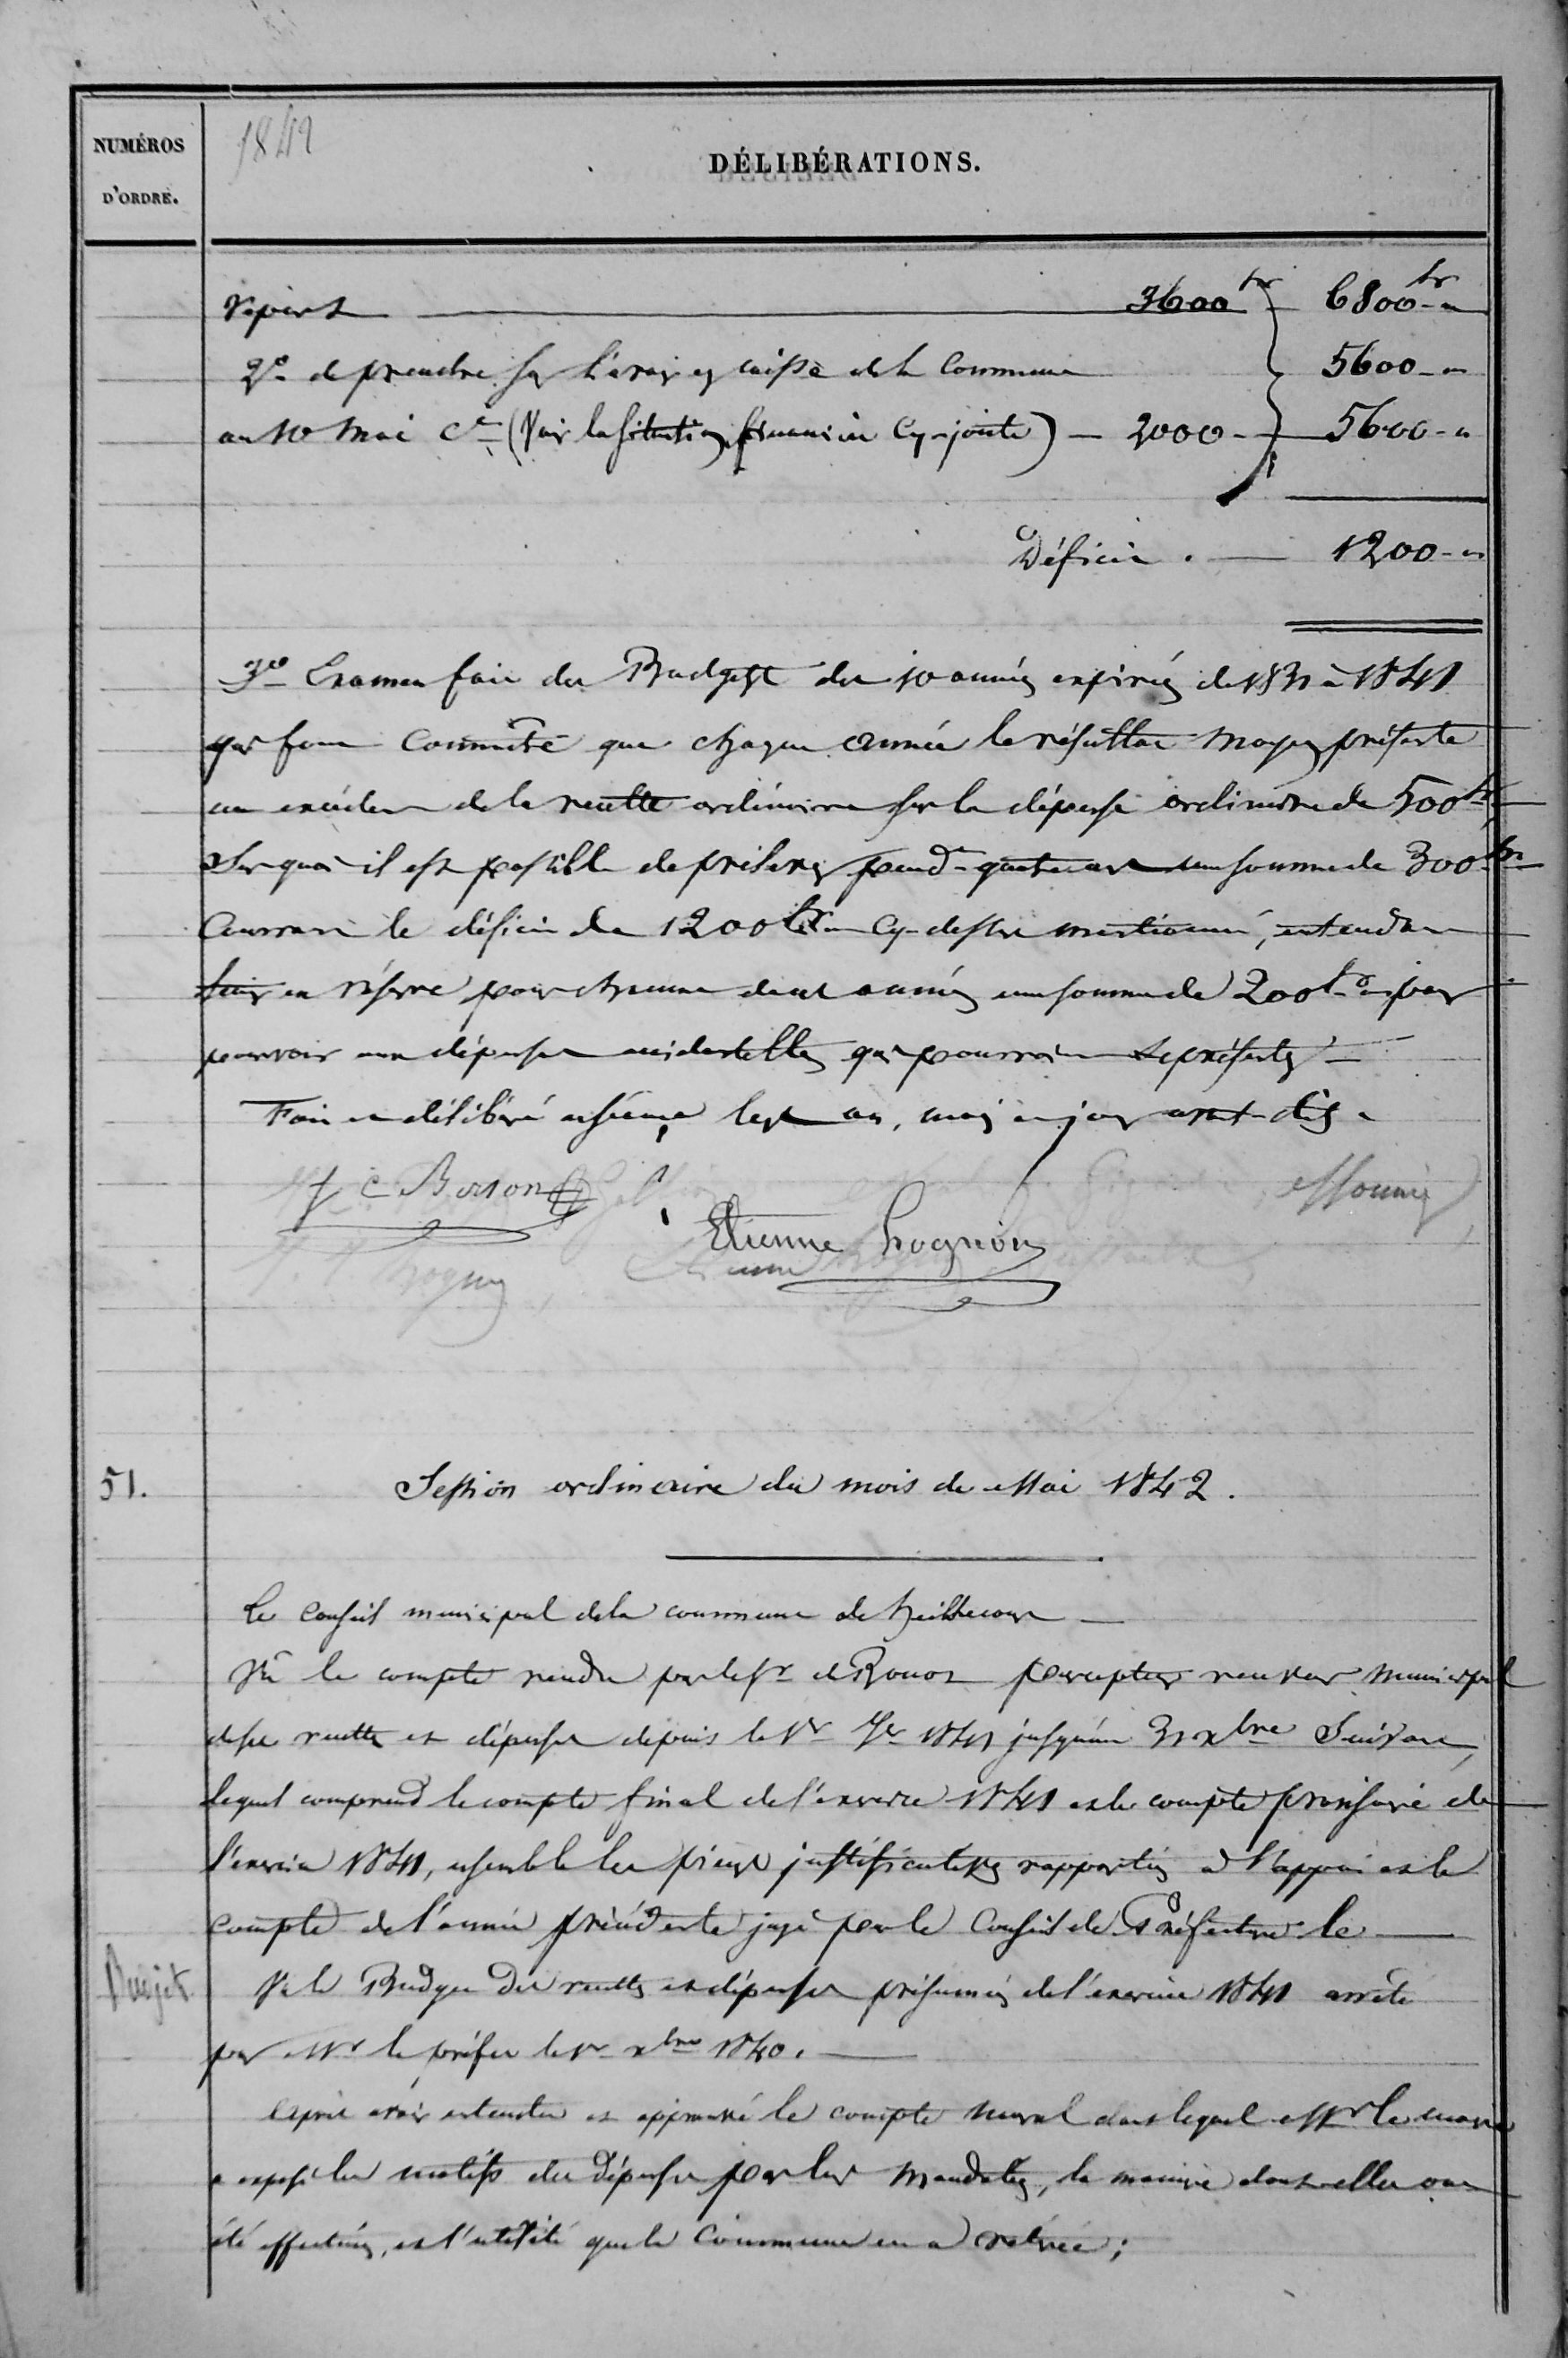 NUMÉROS
D'ORDRE.
1842
DÉLIBÉRATIONS.
Report 3600 fr 6800 fr
2° à prendre sur l'avoir en caisse de la Commune 5600 - "
au 10 Mai Ct (Voir la situation financière cy-jointe) - 2000 - 5600 - "
Déficit . 1200 - "
3° Examen fait des Budgets des 10 années expirées de 1831 à 1841
que chaque année le résultat moyen présente
un excédent de la recette ordinaire sur la dépense ordinaire de 500 fr
Sur quoi il est possible de prélever pend. quatre ans une somme de 300 fr
Couvrant le déficit de 1200 fr cy-dessus mentionné, entendu
en réserve pour chacune de ces années une somme de 200 fr pour
pourvoir aux dépenses accidentelles qui pourraient se présenter
Fait et délibéré en séance les an, mois et jour avant-dits
J C Boson
Etienne Hognon
51.
Session ordinaire du mois de Mai 1842.
Le Conseil municipal de la commune de heillecourt
Vû le compte rendu par le Sr percepteur receveur municipal
des recettes et dépenses depuis le 1er 1841 jusqu'au 31 xbre Suivant,
lequel comprend le compte final de l'exercice et le compte provisoire de
l'exercice 1841, ensemble les pièces justificatives rapportées à l'appui et le
compte de l'année précédente jugé par le Conseil de Préfecture le
Budjet
Vu le Budget des recettes et dépenses présumées de l'exercice 1841 arrêté
par Mr le préfet le 1er xbre 1840.
après avoir entendu et approuvé le compte moral dans lequel Mr le maire
a exposé les motifs des dépenses par lui Mandatées, la manière dont elles ont
été effectuées, et l'utilité que la Commune en a retirée;